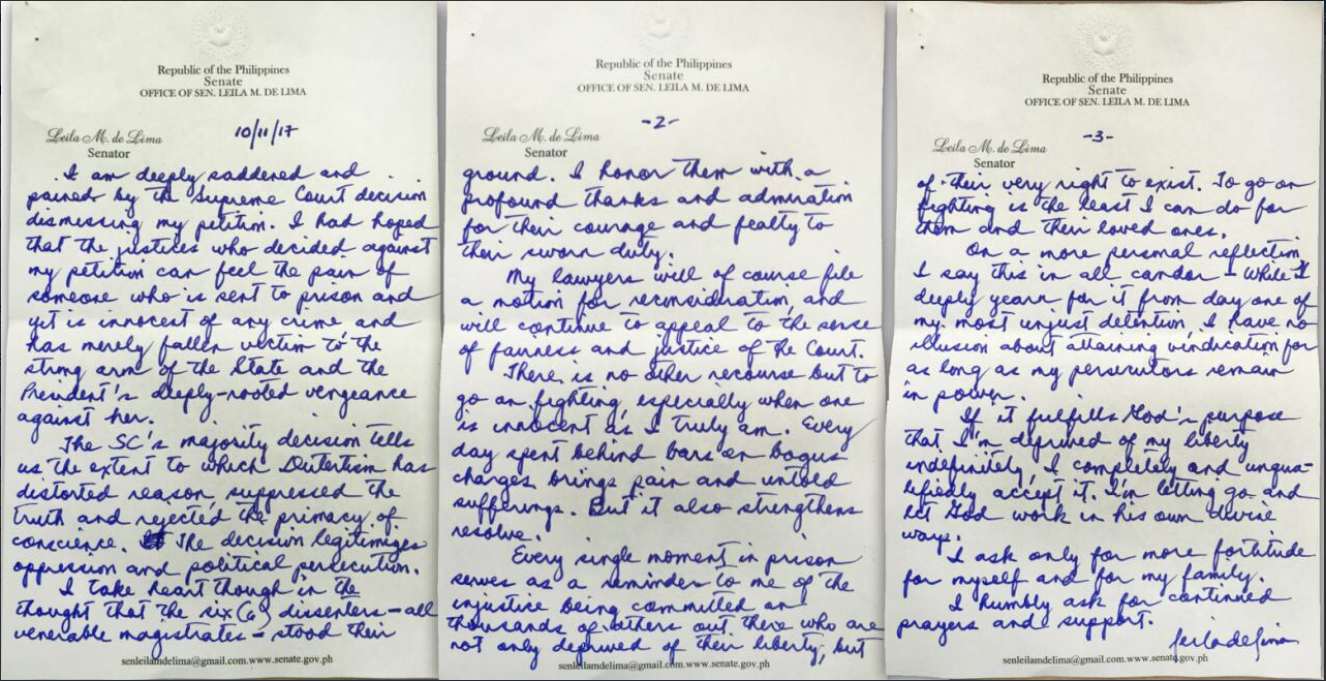 Republic of the Philippines
Senate
OFFICE OF SEN. LEILA M. DE LIMA
10/11/17
Leila M. de Lima
Senator
I am deeply saddened and
pained by the Supreme Court decision
dismissing my petition. I had hoped
that the justices who decided against
my petition can feel the pain of
someone who is sent to prison and
yet is innocent of any crime and
has merely fallen victim to the
strong arm of the State and the
President's deeply-rooted vengeance
against her.
The SC's majority decision tells
us the extent to which Dutertism has
distorted reason, suppressed the
truth and rejected the primacy of
conscience. The decision legitimizes
oppression and political persecution.
I take heart though in the
thought that the six (6) dissenters – all
venerable magistrates – stood their
senleilamdelima@gmail.com.www.senate.gov.ph
Republic of the Philippines
Senate
OFFICE OF SEN. LEILA M. DE LIMA
-2-
Leila M. de Lima
Senator
ground. I honor them with a
profound thanks and admiration
for their courage and fealty to
their sworn duty.
My lawyers will of course file
a motion for reconsideration, and
will continue to appeal to the sense
of fairness and justice of the Court.
There is no other recourse but to
go on fighting, especially when one
is innocent as I truly am. Every
day spent behind bars on bogus
charges brings pain and untold
sufferings. But it also strengthens
resolve.
Every single moment in prison
serves as a reminder to me of the
injustice being committed on
thousands of others out there who are
not only deprived of their liberty, but
senleilamdelima@gmail.com.www.senate.gov.ph
Republic of the Philippines
Senate
OFFICE OF SEN. LEILA M. DE LIMA
-3-
Leila M. de Lima
Senator
of their very right to exist. To go on
fighting is the least I can do for
them and their loved ones.
On a more personal reflection,
I say this in all candor – While I
deeply yearn for it from day one of
my most unjust detention, I have no
illusion about attaining vindication for
as long as my persecutors remain
in power.
If it fulfills God's purpose
that I'm deprived of my liberty
indefinitely, I completely and unqua-
lifiedly accept it. I'm letting go and
let God work in his own divine
ways.
I ask only for more fortitude
for myself and for my family.
I humbly ask for continued
prayers and support.
leiladelima
senleilamdelima@gmail.com.www.senate.gov.ph